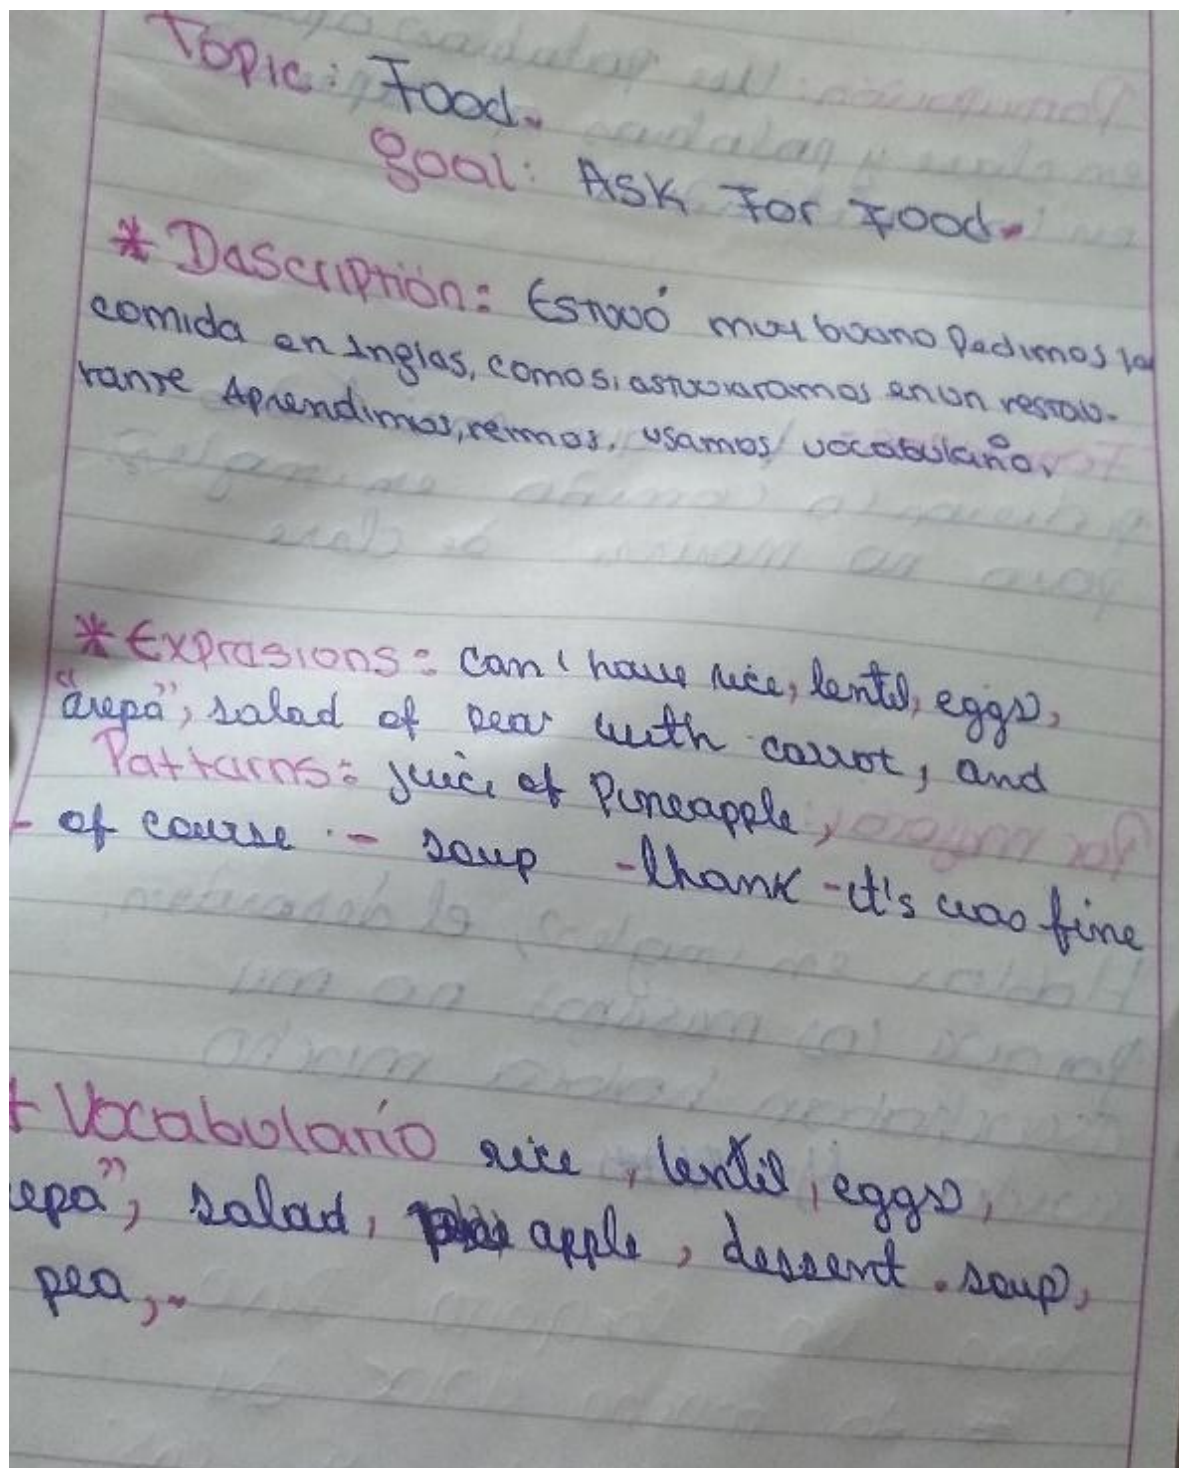 Topic: Food.
goal: Ask For Food.
* Dascriptión: Estuvó muy buano Padimos la
comida an inglas, como si astuviaramos an un restau-
rante Aprendimos, reímos, usamos vocabulario.
* Exprasions: can i have rice, lentil, eggs,
"arepa", salad of pea with carrot, and
Pattarns: juice of Pineapple,
- of course - soup - thank - it's was fine
+ Vocabulario rice, lentil, eggs,
epa", salad, apple, dessert. soup,
pea,.